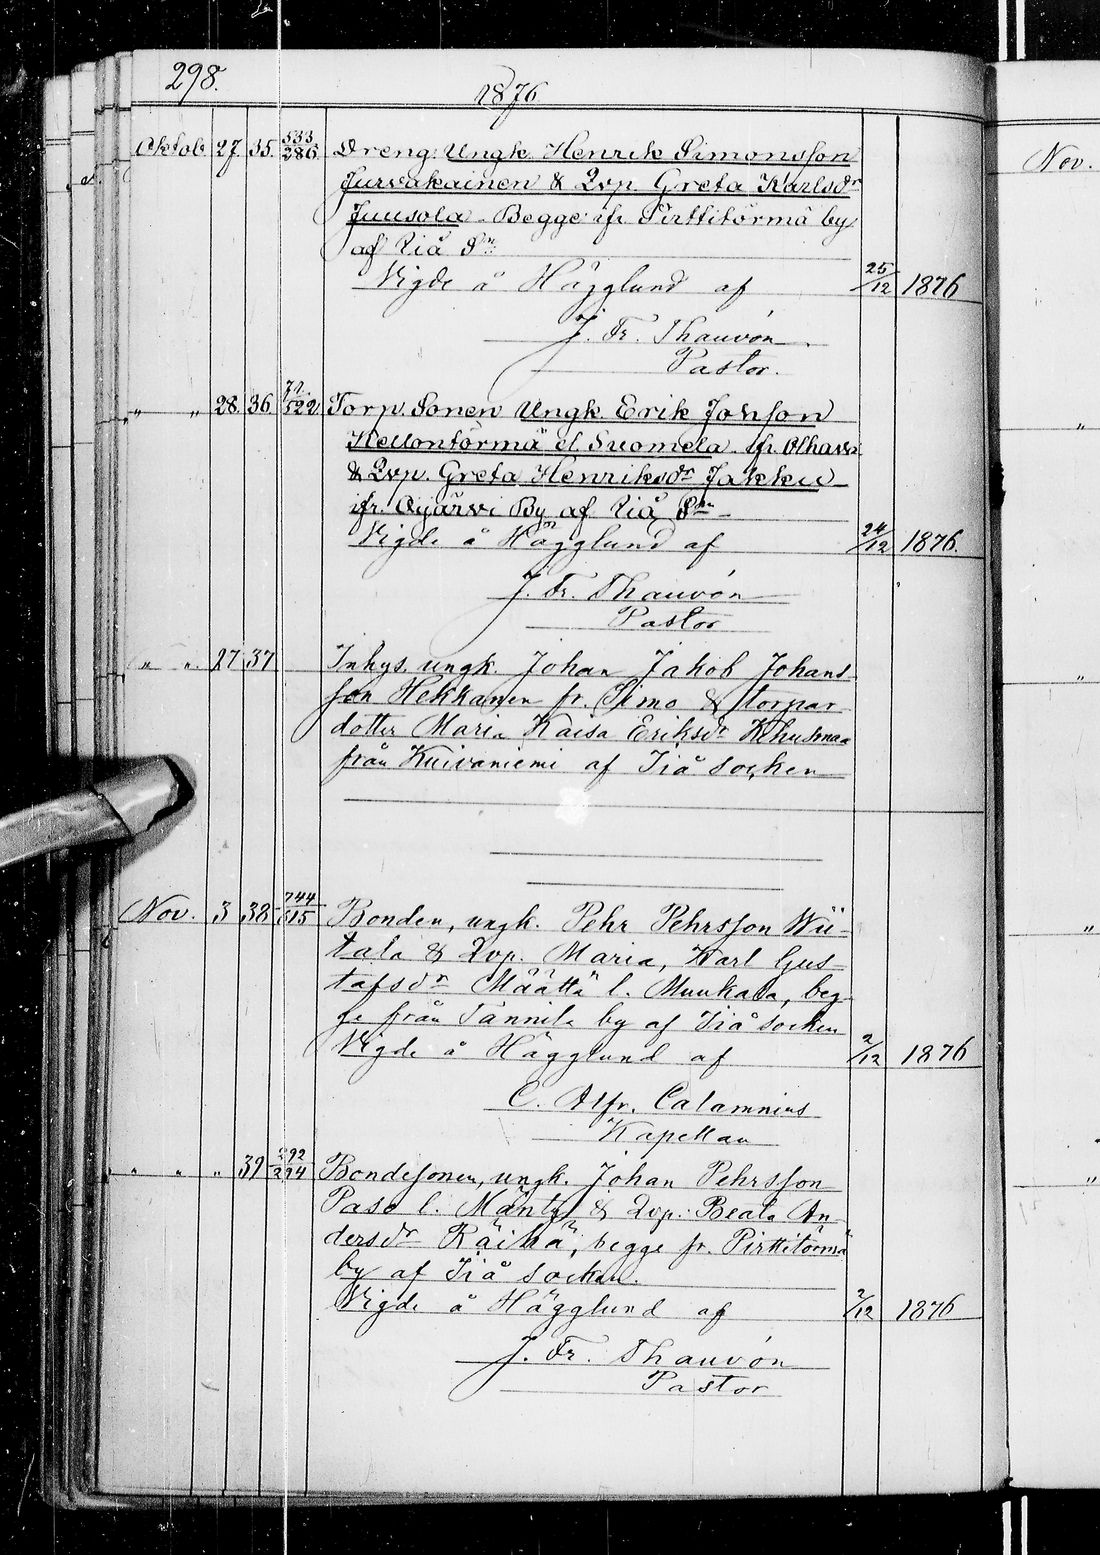 298.
1876
Oktob. 27. 35. 533/286 Dreng. Ungk. Henrik Simonsson
Jurvakainen & Qvp. Greta Karlsdr
Juusola - Begge ifr. Pirttitörmä by
af Iiå Sn
Vigde å Hägglund af 25/12 1876
J. Fr. Thauvón
Pastor.
„ „ 28. 36. 522 Torp. Sonen Ungk. Erik Johsson
Kellontörmä el. Suomela ifr. Olhava
& Qvp. Greta Henriksdr Jakku
ifr. Oijärvi By af Iiå Sn
Vigde å Hägglund af 24/12 1876.
J. Fr. Thauvón
Pastor
„ „ 27 37 Inhys. ungk. Johan Jakob Johans-
son Hekkanen fr. Simo & torpar
dotter Maria Kaisa Eriksdr
från Kuivaniemi af Iiå socken
Nov. 3 38 744/615 Bonden, ungk. Pehr Pehrsson Wii-
tala & Qvp. Maria, Karl Gus-
tafsdr Määttä l. Muukala, beg-
ge från Tannila by af Iiå socken
Vigde å Hägglund af 2/12 1876
C. Alfr. Calamnius
Kapellan
„ „ „ 39 292/294 Bondesonen, ungk. Johan Pehrsson
Paso l. Mänty & Qvp. Beata An-
dersdr Räihä, begge fr. Pirttitörmä
by af Iiå socken.
Vigde å Hägglund af 2/12 1876
J. Fr. Thauvón
Pastor
Nov.
„
„
„
„